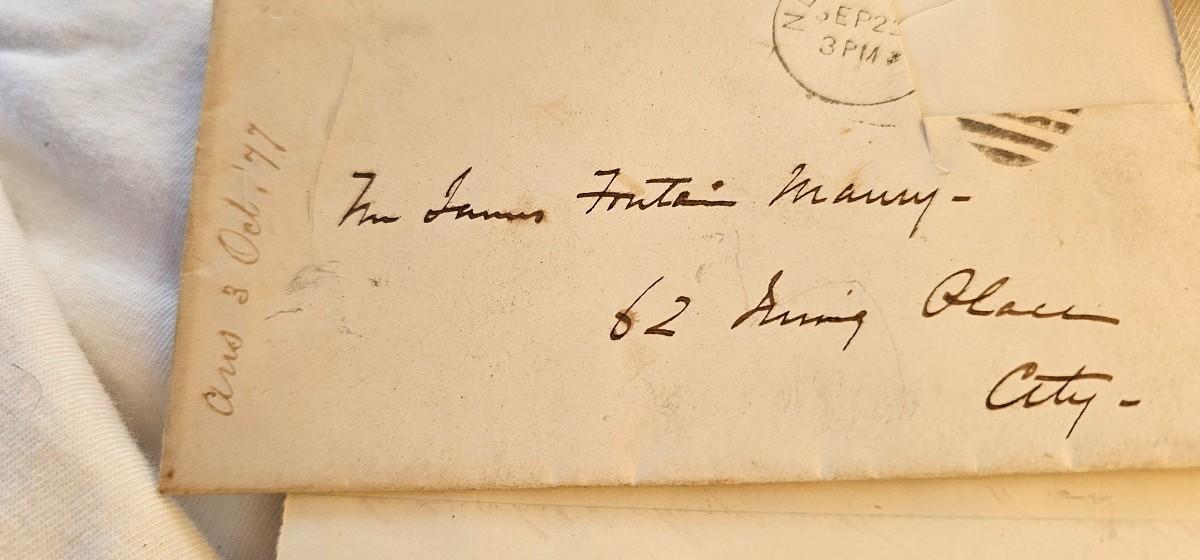 NE
SEP 22
3 PM
ans 3 Oct. '77
Mr James Fontain Maury -
62 Irving Place
City -